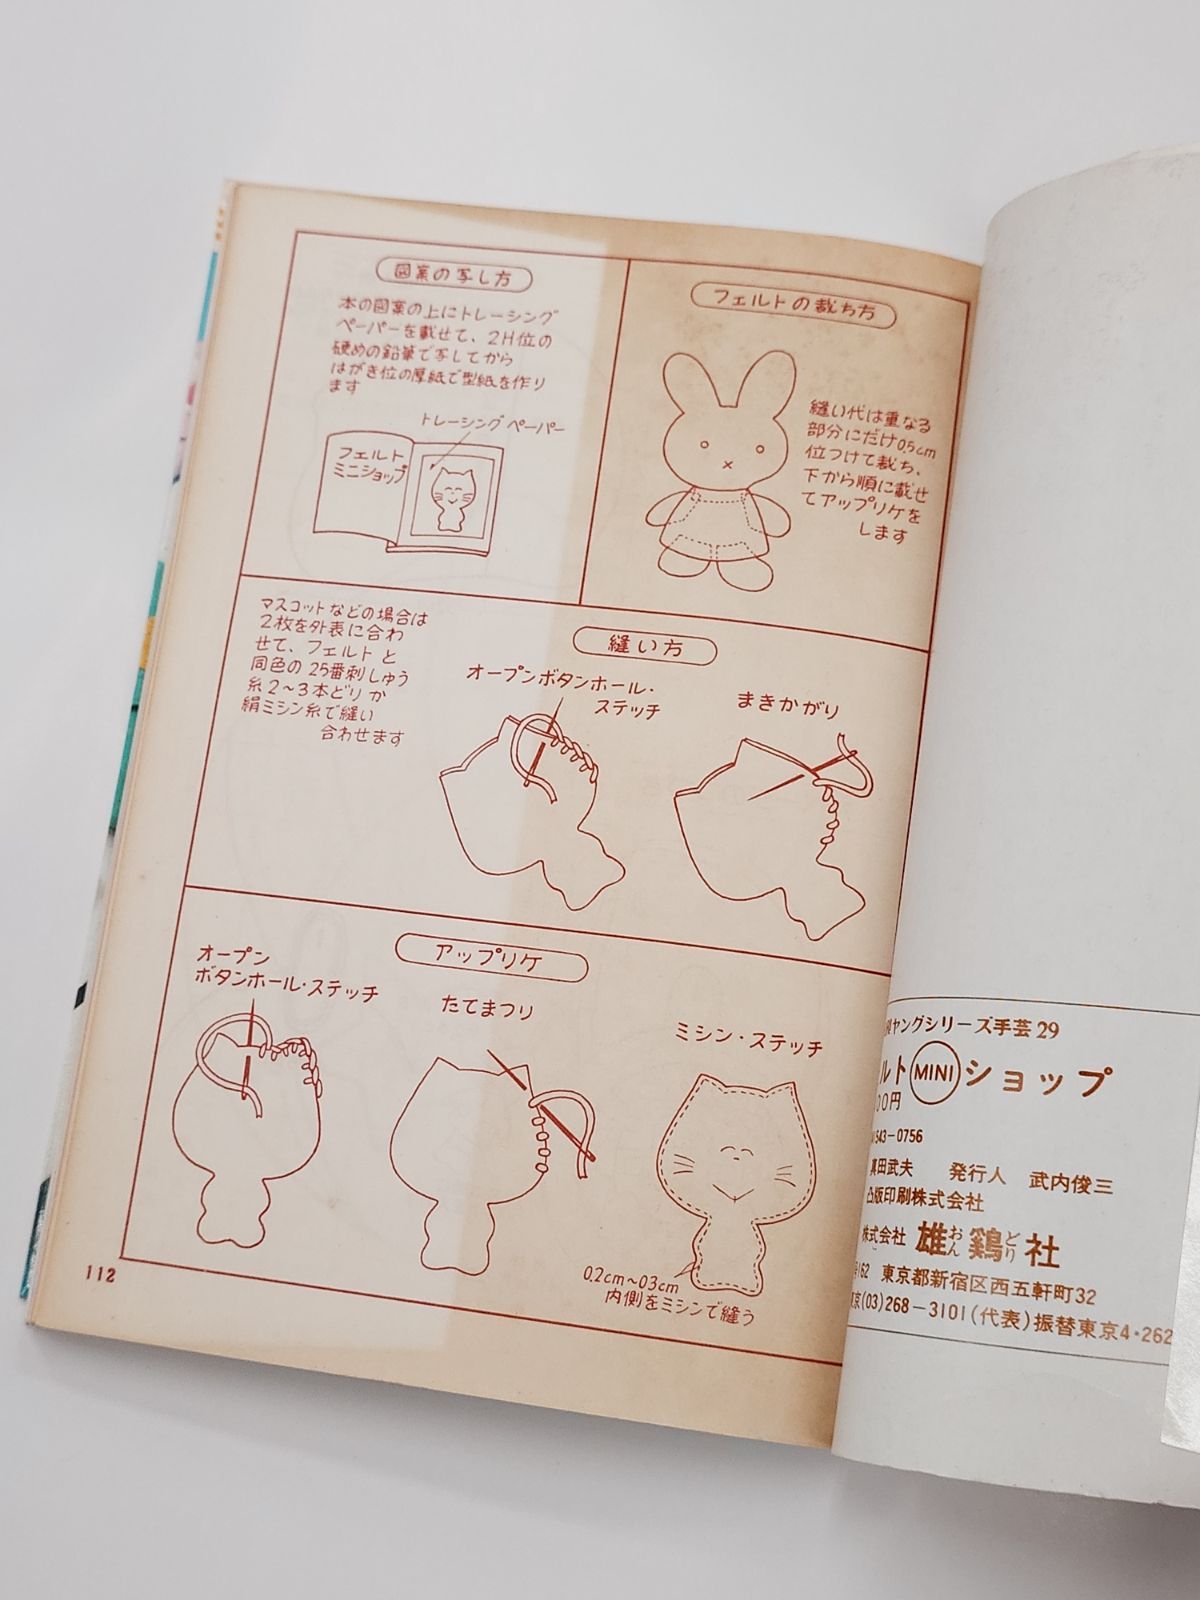 図案の写し方
本の図案の上にトレーシング
ペーパーを載せて、2H位の
硬めの鉛筆で写してから
はがき位の厚紙で型紙を作り
ます
トレーシングペーパー
フェルト
ミニショップ
フェルトの裁ち方
縫い代は重なる
部分にだけ0.5cm
位つけて裁ち、
下から順に載せ
てアップリケを
します
マスコットなどの場合は
2枚を外表に合わ
せて、フェルトと
同色の25番刺しゅう
糸2〜3本どりか
絹ミシン糸で縫い
合わせます
縫い方
オープンボタンホール・
ステッチ
まきかがり
アップリケ
オープン
ボタンホール・ステッチ
たてまつり
ミシン・ステッチ
0.2cm〜03cm
内側をミシンで縫う
112
ヤングシリーズ手芸29
ルトMINIショップ
00円
643-0756
真田武夫 発行人 武内俊三
凸版印刷株式会社
株式会社 雄鶏社
おん どり
162 東京都新宿区西五軒町32
京(03)268-3101(代表)振替東京4・262